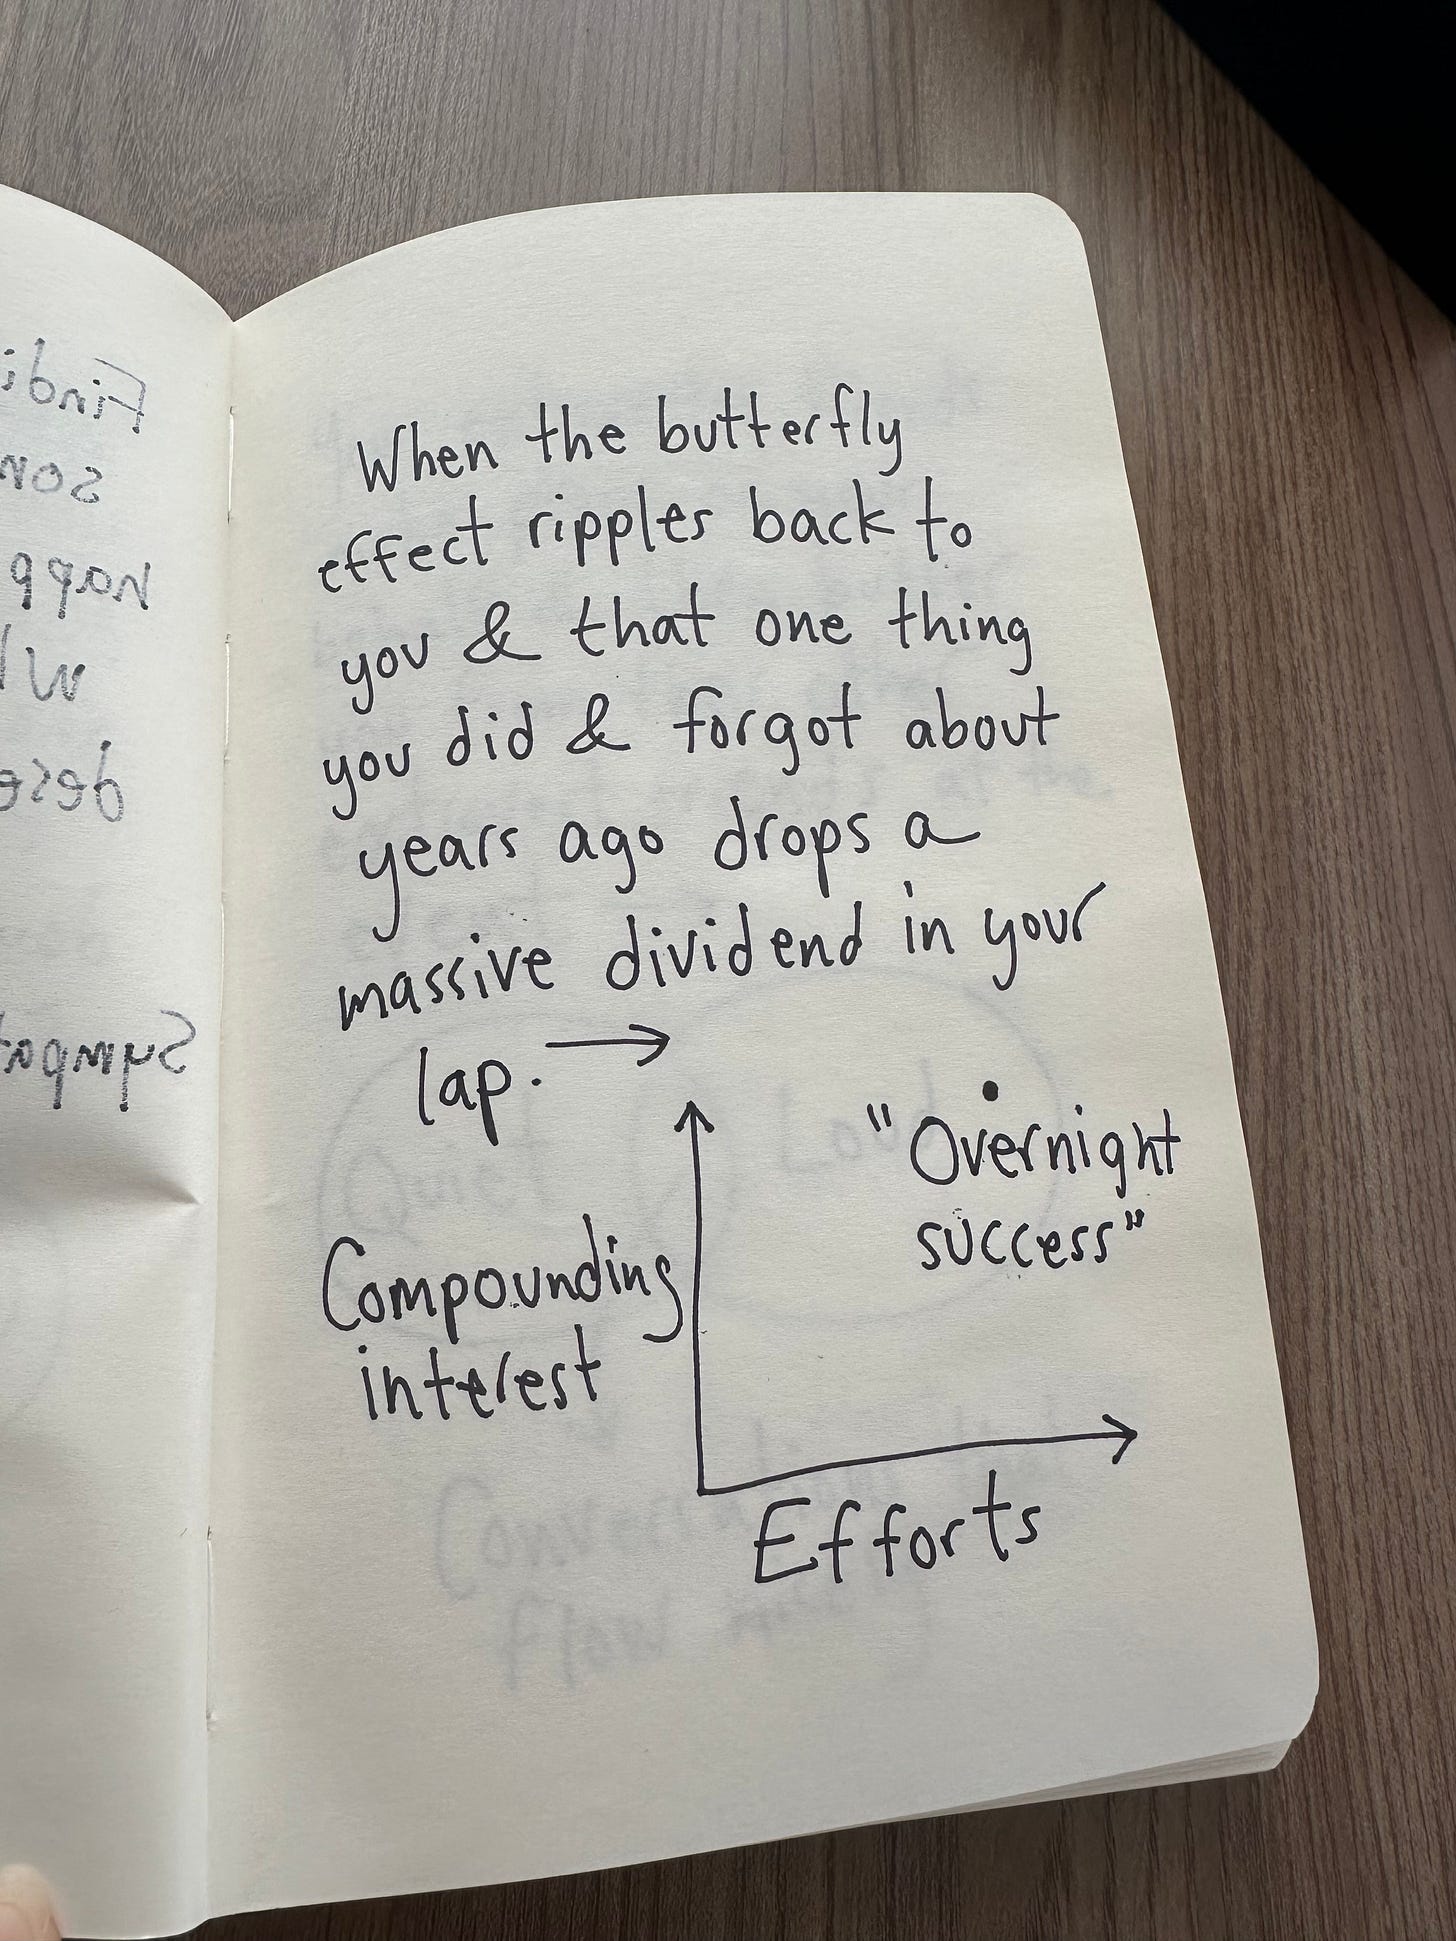 When the butterfly
effect ripples back to
you & that one thing
you did & forgot about
years ago drops a
massive dividend in your
lap. →
"Overnight
success"
Compounding
interest
Efforts